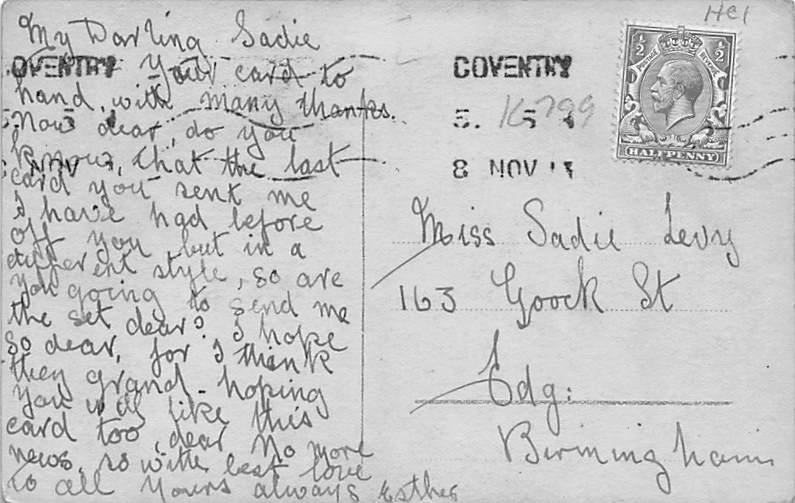 My Darling Sadie
Your card to
hand, with many thanks.
Now dear, do you
know, that the last
card you sent me
I have had before
off you but in a
different style, so are
you going to send me
the set dear? I hope
so dear, for I think
they grand. hoping
you will like this
card too, dear No more
news, so with best love
to all Yours always Esther
COVENTRY
8 NOV
OVENTRY
NOV
HCI
K799
½ ½
POSTAGE REVENUE
HALFPENNY
Miss Sadie Levy
163 Goock St
Edg:
Birmingham